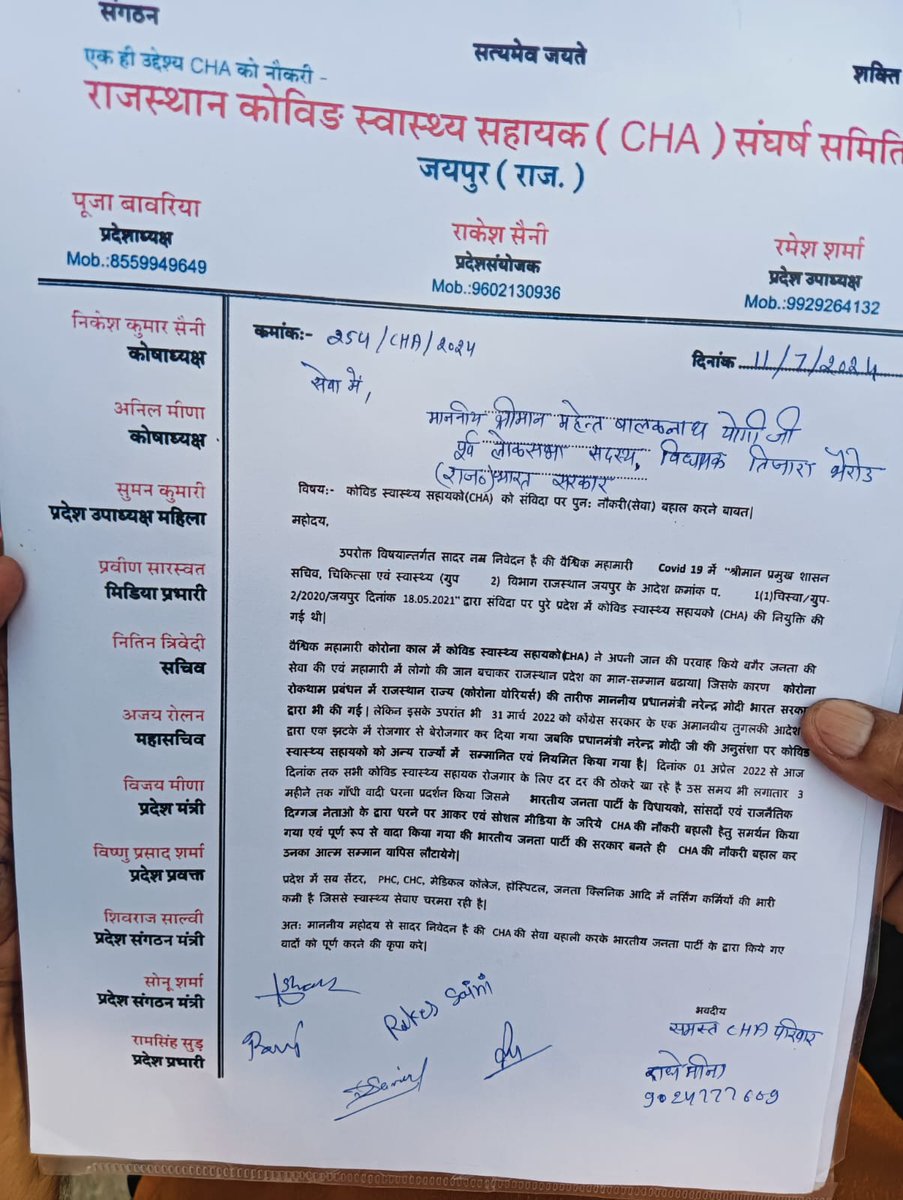 संगठन
सत्यमेव जयते
शक्ति
एक ही उद्देश्य CHA को नौकरी -
राजस्थान कोविङ स्वास्थ्य सहायक ( CHA ) संघर्ष समिति
जयपुर ( राज. )
पूजा बावरिया
प्रदेशाध्यक्ष
Mob.:8559949649
राकेश सैनी
प्रदेशसंयोजक
Mob.:9602130936
रमेश शर्मा
प्रदेश उपाध्यक्ष
Mob.:9929264132
निकेश कुमार सैनी
कोषाध्यक्ष
अनिल मीणा
कोषाध्यक्ष
सुमन कुमारी
प्रदेश उपाध्यक्ष महिला
प्रवीण सारस्वत
मिडिया प्रभारी
नितिन त्रिवेदी
सचिव
अजय रोलन
महासचिव
विजय मीणा
प्रदेश मंत्री
विष्णु प्रसाद शर्मा
प्रदेश प्रवक्त
शिवराज साल्वी
प्रदेश संगठन मंत्री
सोनू शर्मा
प्रदेश संगठन मंत्री
रामसिंह सुड़
प्रदेश प्रभारी
कमांकः- २५५/CHA/२०२५
दिनांक 11/7/२०२५
सेवा में,
माननीय श्रीमान महेन्त बालकनाथ योगी जी
पूर्व लोकसभा सदस्य, विधायक तिजारा भैरोड
(राज०) भारत सरकार
विषय:- कोविड स्वास्थ्य सहायको(CHA) को संविदा पर पुन: नौकरी(सेवा) बहाल करने बावत|
महोदय,
उपरोक्त विषयान्तर्गत सादर नम्र निवेदन है की वैश्विक महामारी Covid 19 में "श्रीमान प्रमुख शासन
सचिव, चिकित्सा एवं स्वास्थ्य (ग्रुप 2) विभाग राजस्थान जयपुर के आदेश क्रमांक प. 1(1)चिस्वा/ग्रुप-
2/2020/जयपुर दिनांक 18.05.2021" द्वारा संविदा पर पुरे प्रदेश में कोविड स्वास्थ्य सहायको (CHA) की नियुक्ति की
गई थी|
वैश्विक महामारी कोरोना काल में कोविड स्वास्थ्य सहायको(CHA) ने अपनी जान की परवाह किये बगैर जनता की
सेवा की एवं महामारी में लोगो की जान बचाकर राजस्थान प्रदेश का मान-सम्मान बढाया| जिसके कारण कोरोना
रोकथाम प्रबंधन में राजस्थान राज्य (कोरोना वोरियर्स) की तारीफ माननीय प्रधानमंत्री नरेन्द्र मोदी भारत सरका
द्वारा भी की गई | लेकिन इसके उपरांत भी 31 मार्च 2022 को काँग्रेस सरकार के एक अमानवीय तुगलकी आदेश
द्वारा एक झटके में रोजगार से बेरोजगार कर दिया गया जबकि प्रधानमंत्री नरेन्द्र मोदी जी की अनुसंशा पर कोविड
स्वास्थ्य सहायको को अन्य राज्यों में सम्मानित एवं नियमित किया गया है| दिनांक 01 अप्रेल 2022 से आज
दिनांक तक सभी कोविड स्वास्थ्य सहायक रोजगार के लिए दर दर की ठोकरे खा रहे है उस समय भी लगातार 3
महीने तक गाँधी वादी धरना प्रदर्शन किया जिसमे भारतीय जनता पार्टी के विधायको, सांसदों एवं राजनैतिक
दिग्गज नेताओ के द्वारा धरने पर आकर एवं सोशल मीडिया के जरिये CHA की नौकरी बहाली हेतु समर्थन किया
गया एवं पूर्ण रूप से वादा किया गया की भारतीय जनता पार्टी की सरकार बनते ही CHA की नौकरी बहाल कर
उनका आत्म सम्मान वापिस लौटायेगे|
प्रदेश में सब सेंटर, PHC, CHC, मेडिकल कोलेज, हॉस्पिटल, जनता क्लिनिक आदि में नर्सिंग कर्मियों की भारी
कमी है जिससे स्वास्थ्य सेवाए चरमरा रही है|
अत: माननीय महोदय से सादर निवेदन है की CHA की सेवा बहाली करके भारतीय जनता पार्टी के द्वारा किये गए
वादों को पूर्ण करने की कृपा करे|
Rakes Saini
भवदीय
समस्त CHA परिवार
राधे मीना
9024777609